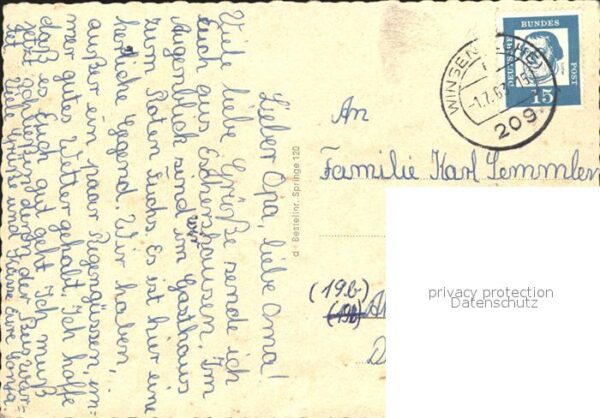 Lieber Opa, liebe Oma!
Viele liebe Grüße sende ich
Euch aus Eschershausen. Im
Augenblick sind wir im Gasthaus
zum Roten Fuchs. Es ist hier eine
herrliche Gegend. Wir haben,
außer ein paar Regengüssen, im-
mer gutes Wetter gehabt. Ich hoffe
daß es Euch gut geht. Ich muß
jetzt schließen, denn der Bus
d · Bestellnr. Springe 120
DEUTSCHE BUNDES POST
15
WINSEN
-1.7.63
209
An
Familie Karl Lemmler
(19b)
(19b)
privacy protection
Datenschutz